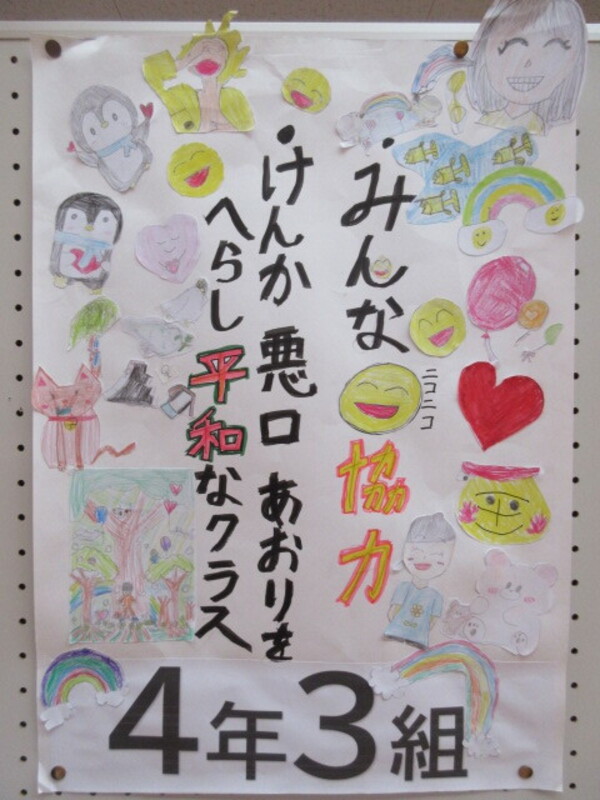 ・みんな
ニコニコ
協力
・けんか悪口あおりを
へらし平和なクラス
4年3組